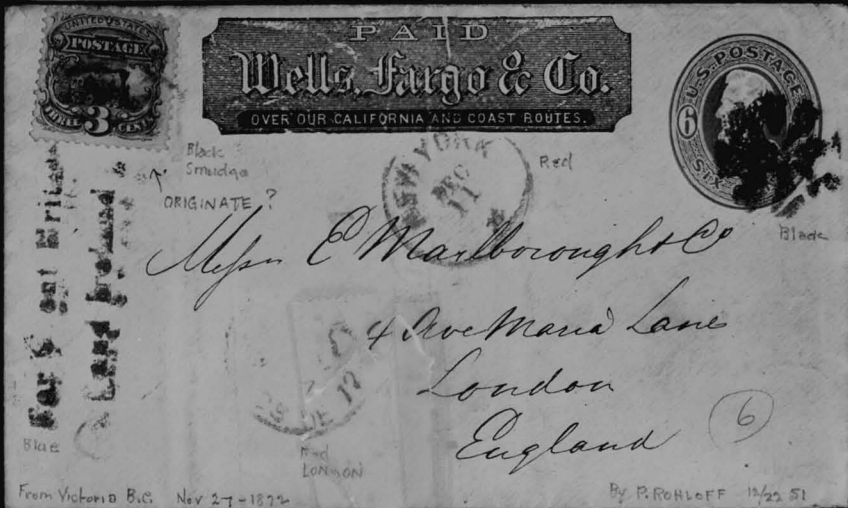 UNITED STATES
POSTAGE
3
CENTS
PAID
Wells, Fargo & Co.
OVER OUR CALIFORNIA AND COAST ROUTES.
U.S. POSTAGE
6
SIX
Black
Smudge
ORIGINATE ?
NEW YORK
DEC
11
Red
Black
Mess E Marlborough & Co
4 Ave Maria Lane
London
England
6
Blue
Red
LONDON
From Victoria B.C. Nov 27-1872
By P. ROHLOFF 12/22 51